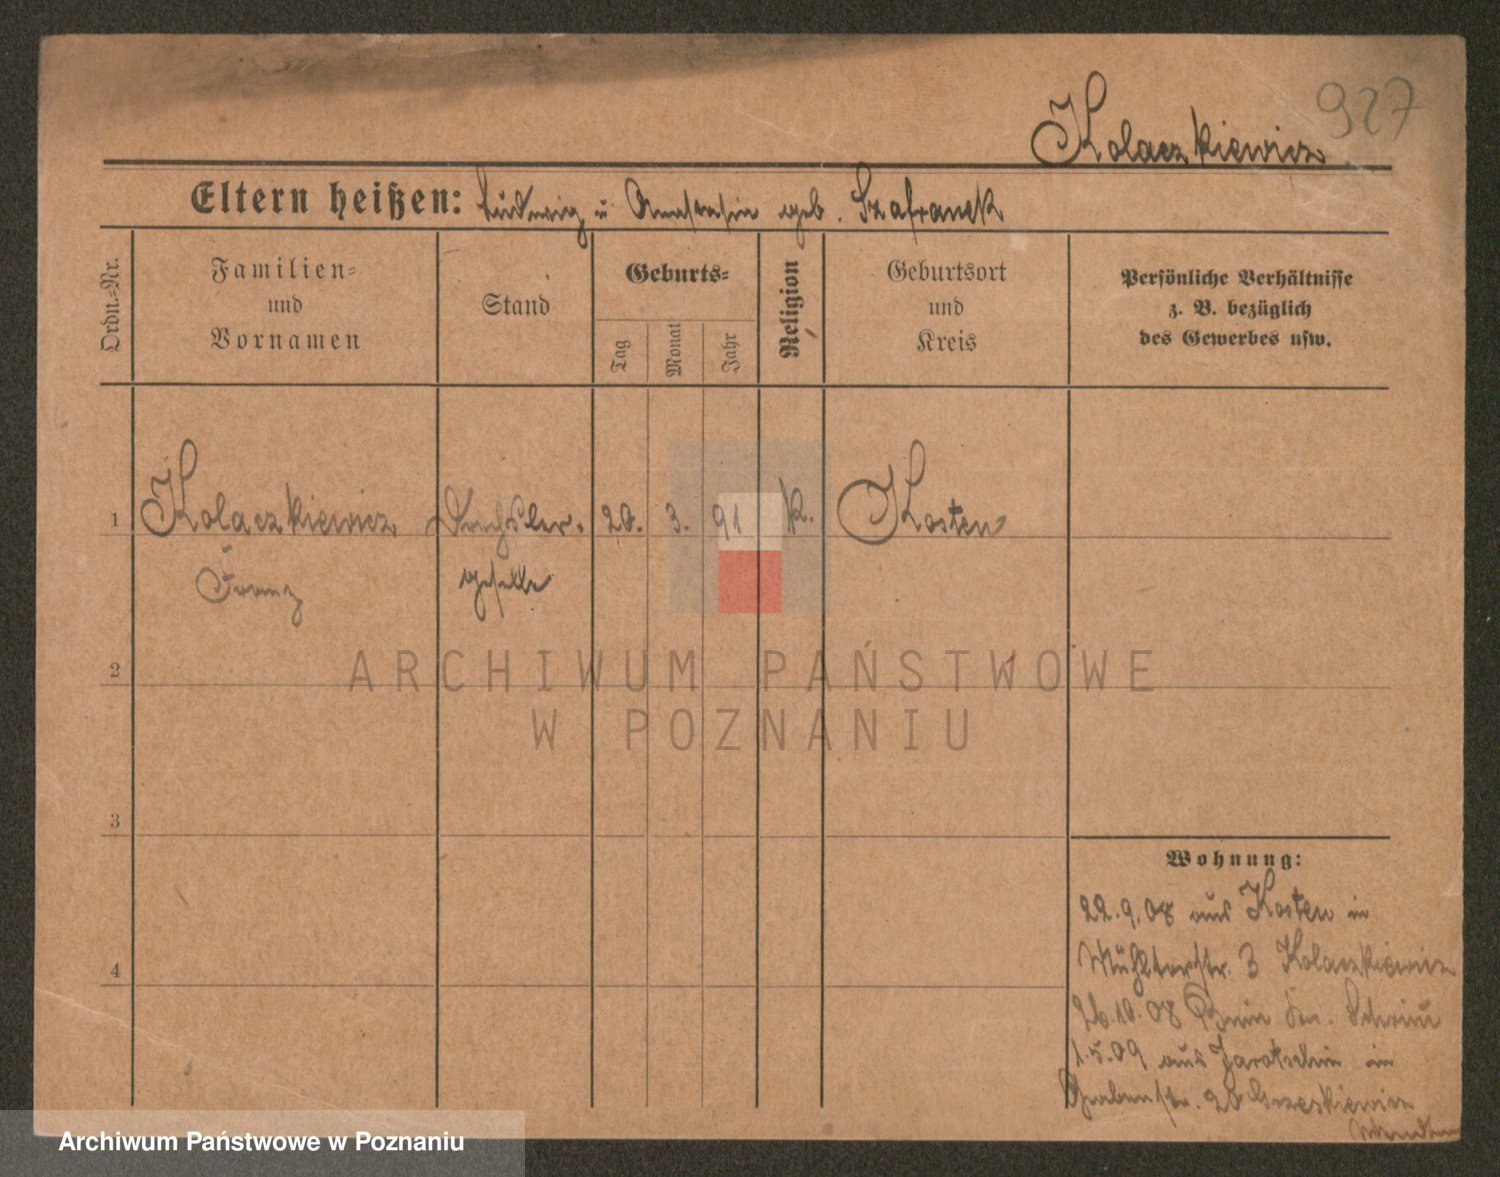 927
Kolaczkiewicz
Eltern heißen: Ludwig u Anastasia geb. Szafranek
Ordn.-Nr.
Familien-
und
Vornamen
Stand
Geburts-
Tag
Monat
Jahr
Religion
Geburtsort
und
Kreis
Persönliche Verhältnisse
z. B. bezüglich
des Gewerbes usw.
1 Kolaczkiewicz Drechsler- 20. 3. 91 k. Kosten
Franz geselle
2
ARCHIWUM PAŃSTWOWE
W POZNANIU
3
Wohnung:
22.9.08 aus Kosten in
Mühlthorstr. 3 Kolaczkiewicz
26.10.08 Bnin Kr. Schrim
4
1.5.09 aus Jarotschin in
Grabenstr. 20
Archiwum Państwowe w Poznaniu